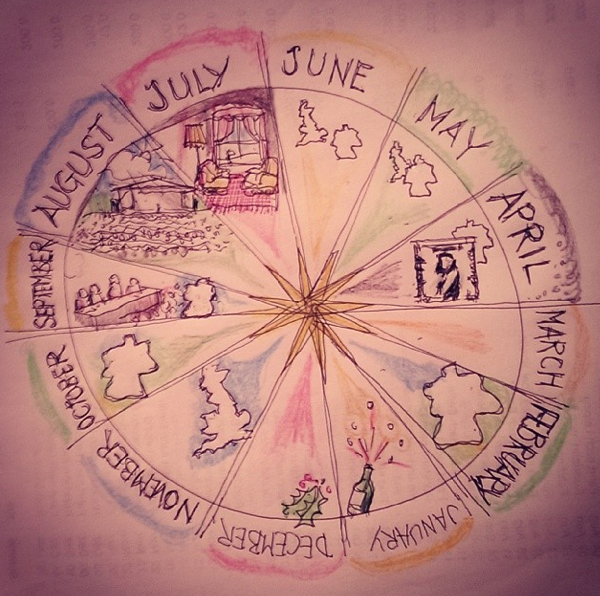 JUNE
MAY
APRIL
MARCH
FEBRUARY
JANUARY
DECEMBER
NOVEMBER
OCTOBER
SEPTEMBER
AUGUST
JULY